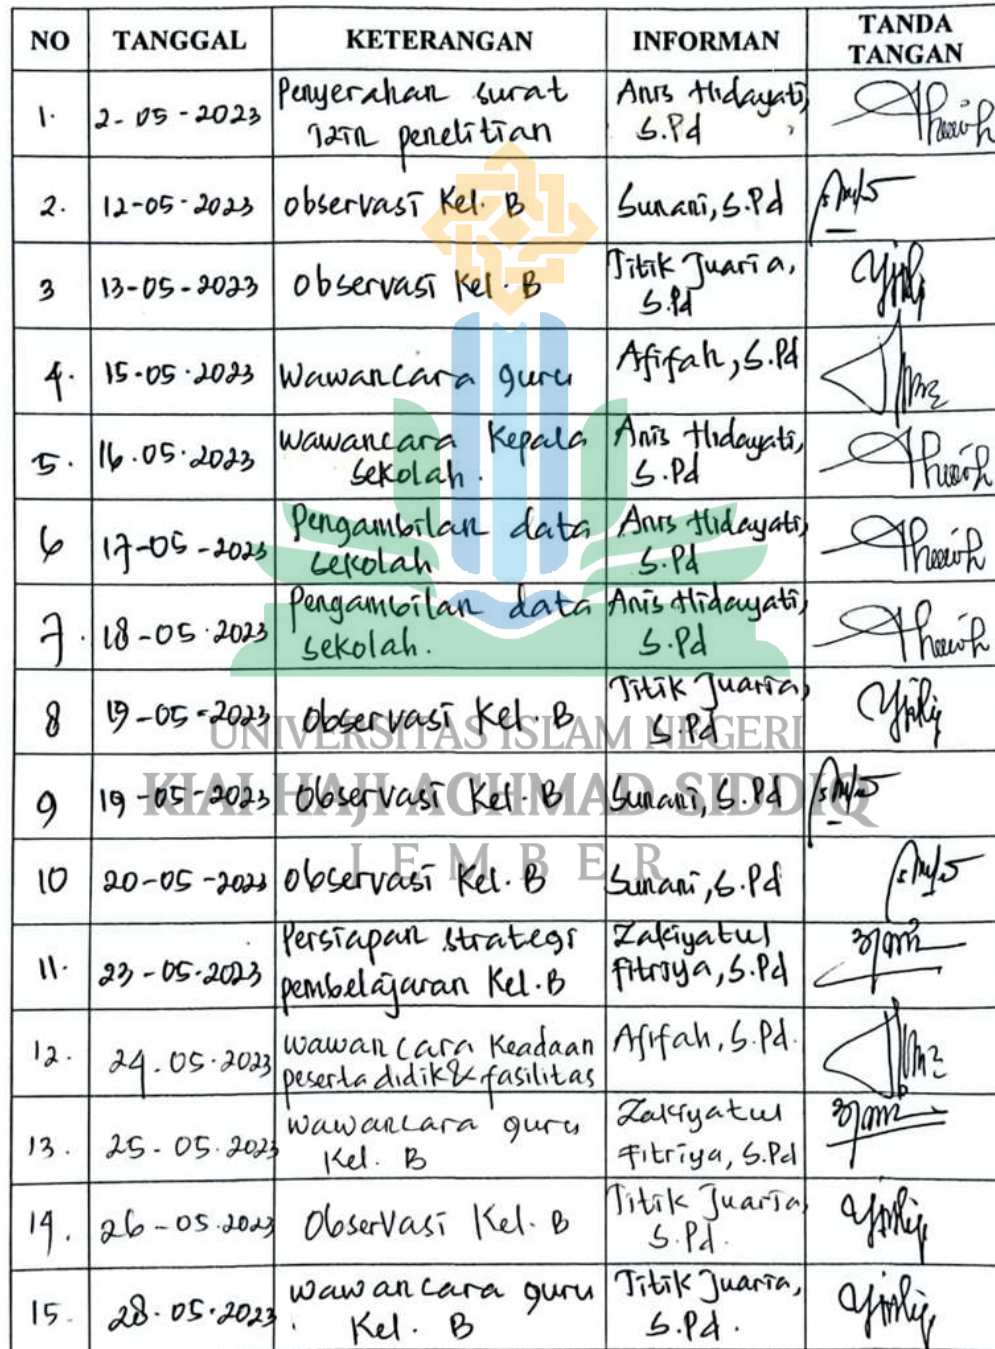 NO TANGGAL KETERANGAN INFORMAN TANDA TANGAN
1. 2-05-2023 Penyerahan surat izin penelitian Anis Hidayati, S.Pd
2. 12-05-2023 observasi Kel. B Sunani, S.Pd
3 13-05-2023 observasi Kel. B Titik Juaria, S.Pd
4. 15-05-2023 Wawancara guru Afifah, S.Pd
5. 16.05.2023 Wawancara Kepala sekolah. Anis Hidayati, S.Pd
6 17-05-2023 Pengambilan data sekolah Anis Hidayati, S.Pd
7. 18-05-2023 Pengambilan data sekolah. Anis Hidayati, S.Pd
8 19-05-2023 Observasi Kel. B Titik Juaria, S.Pd
UNIVERSITAS ISLAM NEGERI
9 19-05-2023 Observasi Kel. B Sunani, S.Pd
KIAI HAJI ACHMAD SIDDIQ
JEMBER
10 20-05-2023 observasi Kel. B Sunani, S.Pd
11. 23-05-2023 Persiapan strategi pembelajaran Kel. B Zakiyatul fitriya, S.Pd
12. 24.05.2023 Wawancara Keadaan peserta didik & fasilitas Afifah, S.Pd.
13. 25-05.2023 Wawancara guru Kel. B Zakiyatul Fitriya, S.Pd
14. 26-05.2023 Observasi Kel. B Titik Juaria, S.Pd.
15. 28.05.2023 Wawancara guru Kel. B Titik Juaria, S.Pd.